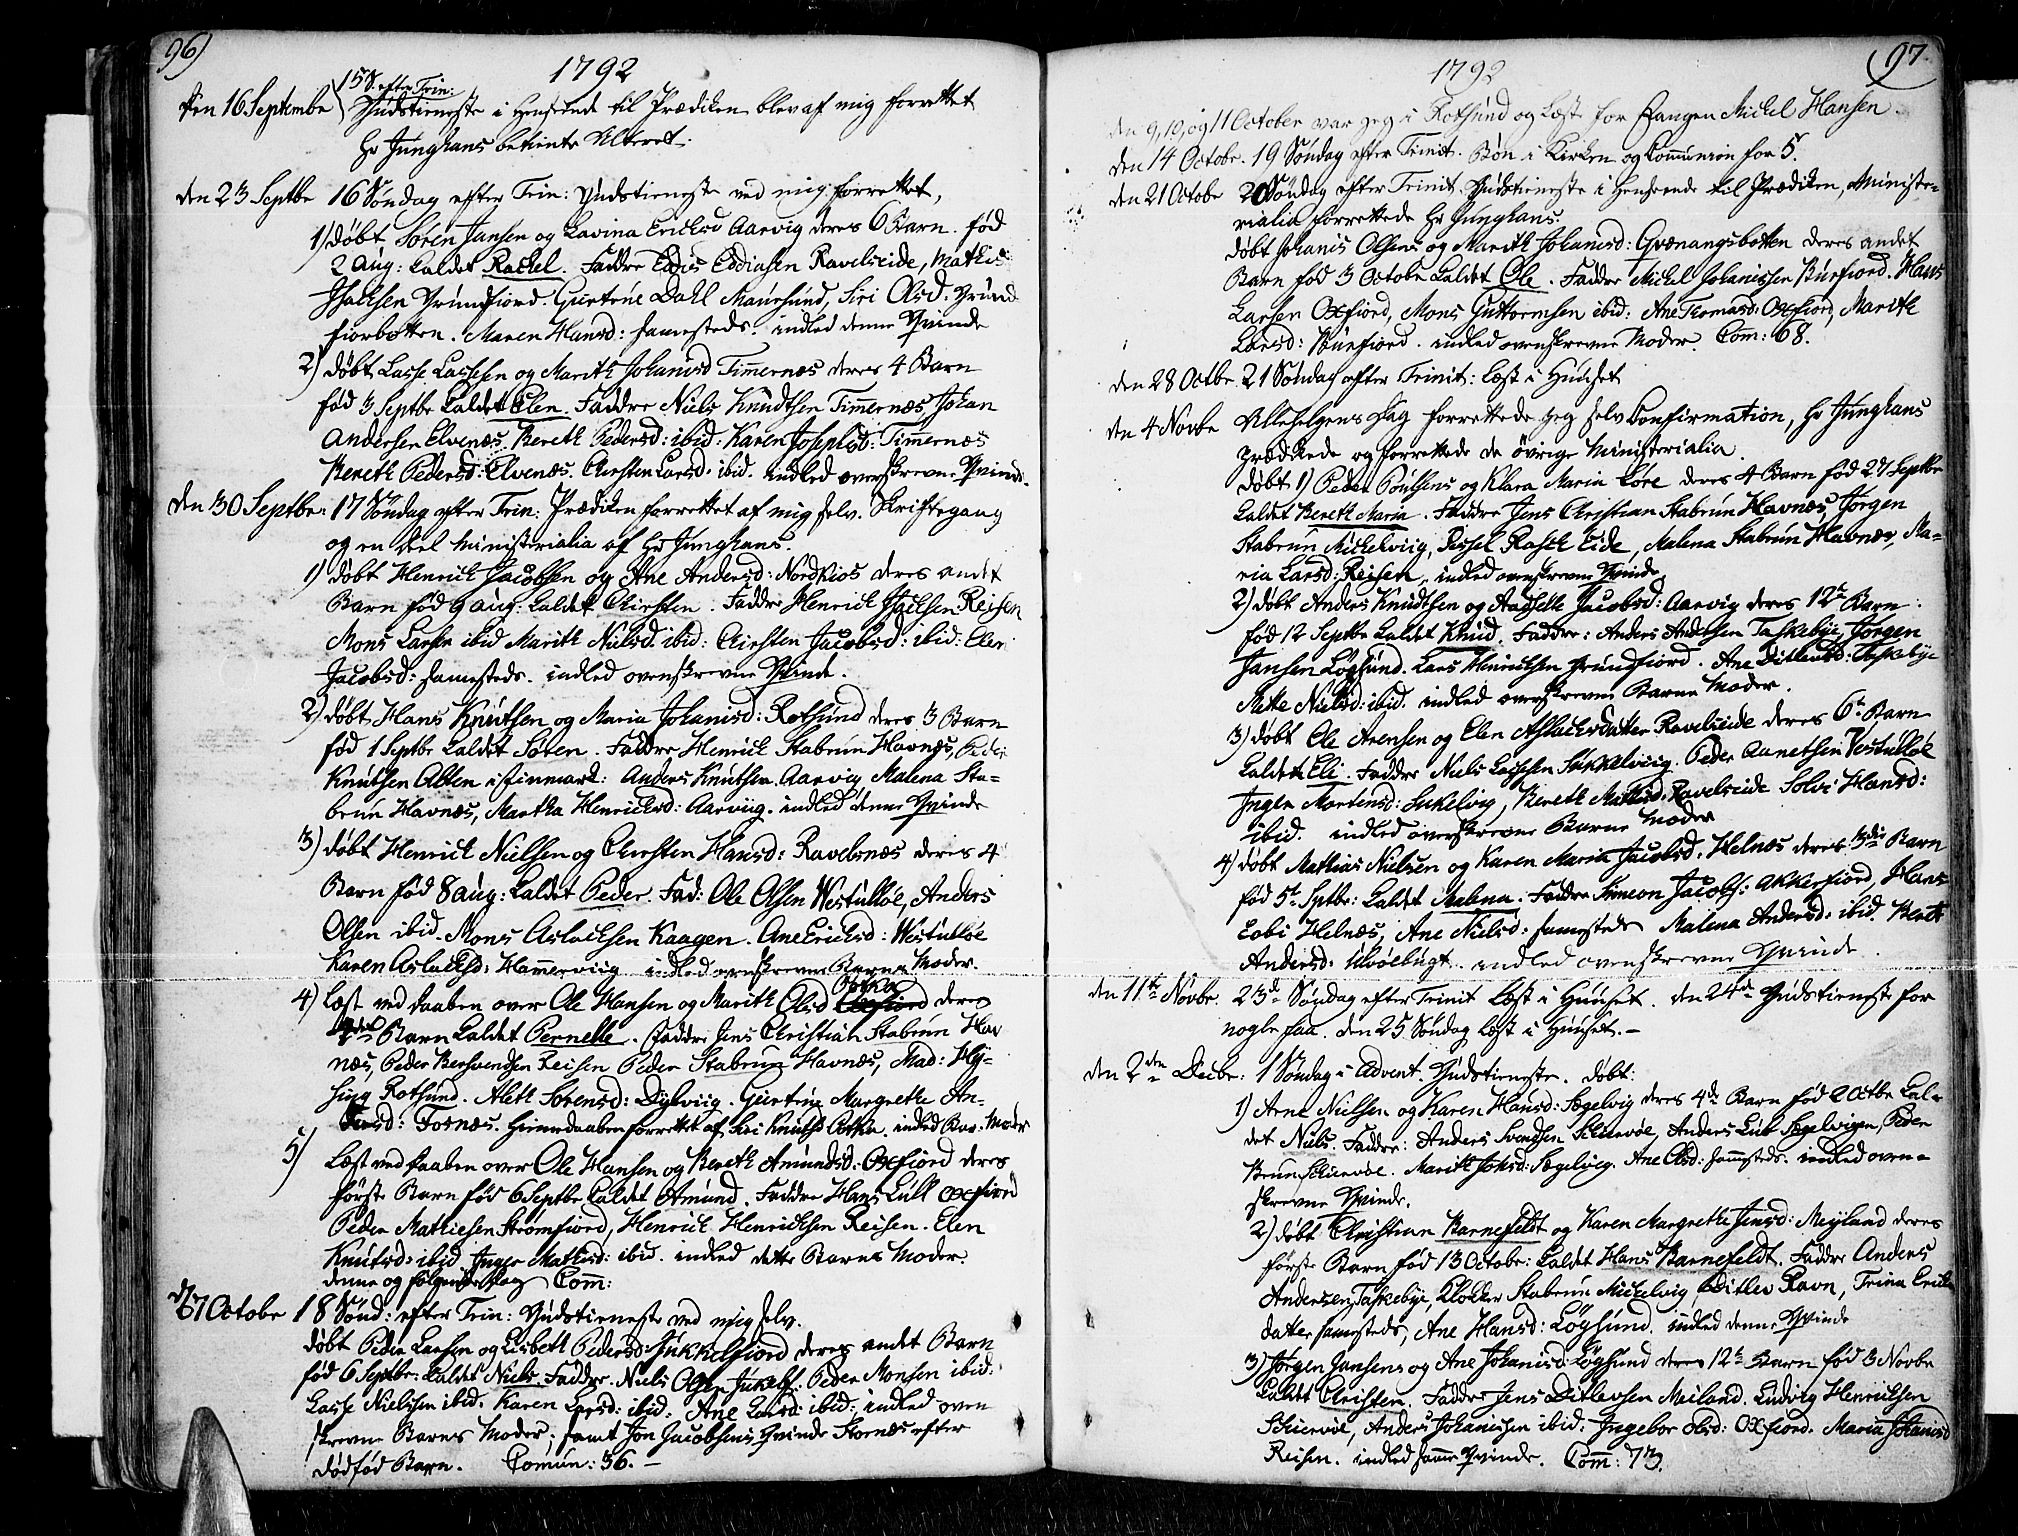 96)
1792
15 S. efter Trin:
Den 16 Septembe Gudstieneste i Henseende til Prædiken blev af mig forrettet
Hr Junghans betiente Alteret.
den 23 Septbe 16 Søndag efter Trin: Gudstieneste ved mig forrettet,
1) døbt Søren Jansen og Lavina Ericksd Aarvig deres 6 Barn. fød
2 Aug: Caldet Rachel. Faddre Eddis Eddiasen Ravelseide, Mathis
Isachsen Grundfiord. Giertrue Dahl Maursund, Siri Olsd. Grund
fiorbotten. Maren Hansd: samesteds. indled denne Qvinde
2) døbt Lasse Lassesen og Marith Johanisd Timernæs deres 4 Barn
fød 3 Septbe Caldet Elen. Faddre Niels Knudtsen Timernæs, Johan
Andersen Elvenæs. Bereth Pedersd: ibid: Karen Josephsd: Timernæs
Bereth Pedersd: Elvenæs. Chirsten Larsd. ibid. indled overskrevne Qvinde.
den 30 Septbe: 17 Søndag efter Trin: Prædiken forrettet af mig selv. Skriftegang
og en deel Ministerialia af Hr Junghans.
1) døbt Henrich Jacobsen og Ane Andersd: Nordkios deres andet
Barn fød 9 Aug: Caldet Chirsten. Faddre Henrich Isachsen Reisen
Mons Larsen ibid Marith Nielsd. ibid: Chirsten Jacobsd: ibid: Elen
Jacobsd: samesteds. indled ovenskrevne Qvinde.
2) døbt Hans Knutsen og Maria Johanisd: Rotsund deres 3 Barn
fød 1 Septbe Caldet Søren. Faddre Henrich Stabrun Havnæs, Peder
Knutsen Alten i Finmark: Anders Knutsen Aarvig Malena Sta-
brun Havnæs, Martha Henricksd: Aarviig. indled denne Qvinde
3) døbt Henrich Nielsen og Chirsten Hansd: Ravelsnæs deres 4
Barn fød 8 Aug: Caldet Peder. Fad: Ole Olsen Westulløe, Anders
Olsen ibid. Mons Aslachsen Kaagen. Ane Ericksd: Westulløe
Karen Aslachsd: Hamerviig indled ovenskrevne Barns Moder.
4) Læst ved Daaben over Ole Hansen og Marith Olsd deres
Barn Caldet Pernelle. Faddre Jens Christian Stabrun Hav
næs, Peder Bersvendsen Reisen Peder Stabrun Havnæs, Mad: Hy-
sing Rotsund. Aleth Sorensd: Dylviig. Giertrue Margrethe An-
dersd: Fornæs. Hiemedaaben forrettet af Siri Knutsd. indled Bar. Moder
5) Læst ved Daaben over Ole Hansen og Bereth Amundsd: Oxfiord deres
første Barn fød 6 Septbe Caldet Amund. Faddre Hans Lull Oxfiord
Peder Mathiesen Strømfiord, Henrich Henrichsen Reisen. Elen
Knutsd: ibid. Inger Mathisd: ibid. indled dette Barns Moder.
denne og følgende Dag Com:
d 7 Octobe 18 Sønd: efter Trin: Gudstieneste ved mig selv.
døbt Peder Larsen og Lisbeth Pedersd: Jukkelfiord deres andet Barn
fød 6 Septbe: Caldet Niels. Faddre. Niels Olsen Jukelf. Peder Monsen ibid:
Lasse Nielssen ibid. Karen Larsd: ibid: Ane Larsd: ibid: indled oven
skrevne Barns Moder; samt Jon Jacobsens Qvinde Stornæs efter
dødfød Barn. Comun: 56. –
97.
1792
den 9, 10, og 11 October var jeg i Rotsund og Læste for Fangen Mickel Hansen.
den 14 Octobe. 19 Søndag efter Trinit. Bøn i Kirken og Communion for 5.
den 21 Octobe 20 Søndag efter Trinit. Gudstieneste i Henseende til Prædiken, Ministe-
rialia forrettede Hr Junghans.
døbt Johanis Olsens og Marith Johanisd: Qvænangsbotten deres andet
Barn fød 3 Octobe Caldet Ole. Faddre Mickel Johanissen Burfiord. Hans
Larsen Oxfiord, Mons Guttormsen ibid: Ane Thomasd: Oxfiord, Marith
Larsd: Burfiord. indled ovenskrevne Moder. Com: 68.
den 28 Octbe. 21 Søndag efter Trinit: Læst i Huuset
den 4 Novbe Allehelgens Dag forrettede jeg selv Confirmation, Hr Junghans
Prædikede og forrettede de øvrige Ministerialia.
døbt 1) Peder Poulsens og Klara Maria Lore deres 4 Barn fød 27 Septbe
Caldet Bereth Maria. Faddre Jens Christian Stabrun Havnæs, Jørgen
Stabrun Mickelviig, Sissel Rasch Eide, Malena Stabrun Havnæs, Ma-
ria Larsd: Reisen, indled ovenskrevne Qvinde
2) døbt Anders Knudtsen og Jacobsd: Aarvig deres 12te Barn
fød 12 Septbe Caldet Knud. Faddre: Anders Andersen Taskebye, Jørgen
Jansen Løgsund. Lars Henrichsen Grundfiord. Ane Ditlevsd: Taskebye
Mette Nielsd: ibid. indled overskrevne Barns Moder.
3) døbt Ole Arensen og Elen Aslachsdatter Ravelseide deres 6te Barn
Caldet Eli. Faddre Niels Lassesen Sukkelviig. Peder Aanetsen Vestulløe
Inger Mortensd: Sukelvig, Bereth Mathisd. Ravelseide Solvi Hansd:
ibid. indled overskrevne Barns Moder
4) døbt Mathias Nielsen og Karen Maria Jacobsd. Helnæs deres 3die Barn
fød 5te Sptbe: Caldet Malena. Faddre Simeon Jacobs: Akkerfiord, Hans
Tobi Helnæs, Ane Nielsd: samesteds Malena Andersd: ibid. Bereth
Andersd: Hvalbugt. indled ovenskrevne Qvinde.
den 11te Novbe. 23de Søndag efter Trinit Læst i Huuset. den 24de Gudstieneste for
nogle faa. den 25 Søndag Læst i Huuset. –
den 2den Decbe: 1 Søndag i Advent. Gudstieneste. døbt:
1) Arne Nielsen og Karen Hansd: Sægelvig deres 4de Barn fød 2 Octbe Cal-
det Niels. Faddre: Anders Svendsen Skiervøe, Anders Lull Sægelvigen, Peder
Brun Skiervøe. Marith Johsd: Sægelvig. Ane Olsd: samesteds. indled oven-
skrevne Qvinde.
2) døbt Christian Barnefeldt og Karen Margrethe Jensd: Meyland deres
første Barn fød 13 Octobe: Caldet Hans Barnefeldt. Faddre Anders
Andersen Taskebye, Klocker Stabrun Mickelvig, Ditlev Ravn, Trina Ericks
datter samesteds, Ane Hansd: Løgsund. indled denne Qvinde
3) Jørgen Jansens og Ane Johanisd: Løgsund deres 12te Barn fød 3 Novbe
Caldet Christen. Faddre Jens Ditlevsen Meiland. Ludvig Henrichsen
Skiervøe, Anders Johanisen ibid. Ingebor Olsd: Oxfiord. Maria Johanisd
Reisen. indled same Qvinde. Com: 73.